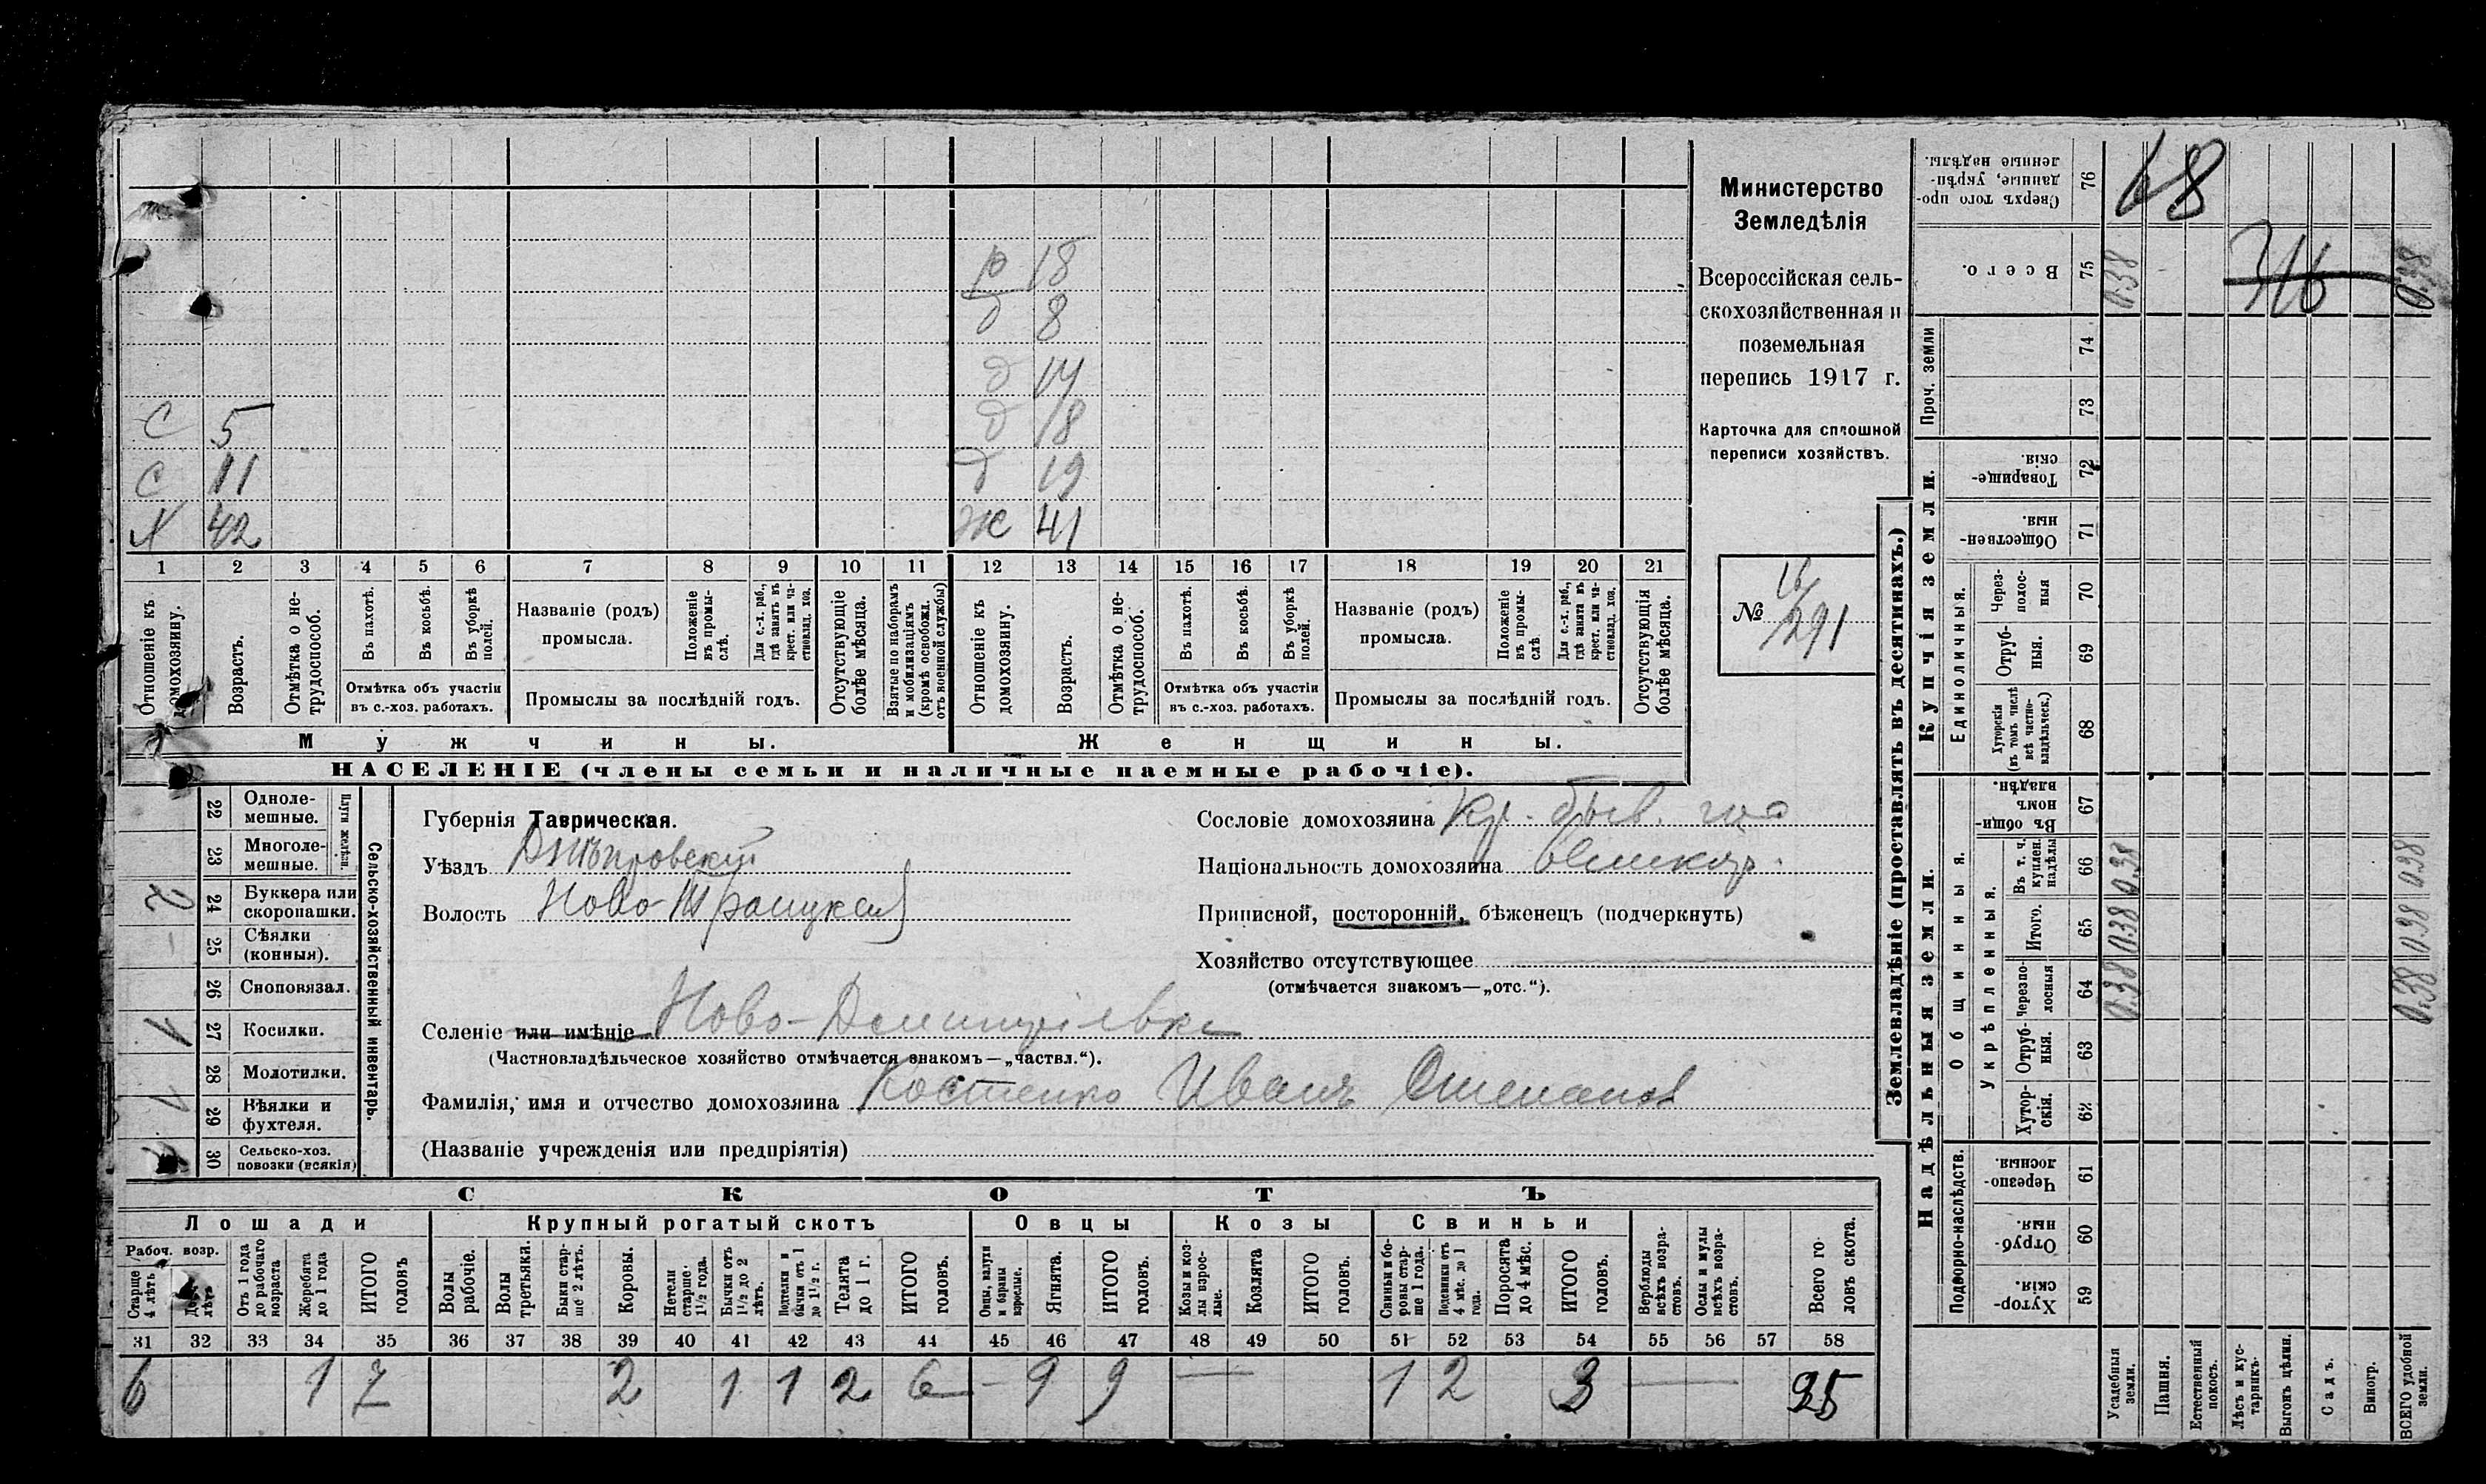 Министерство
Земледѣлія
Всероссійская сель-
скохозяйственная и
поземельная
перепись 1917 г.
Карточка для сплошной
переписи хозяйствъ.
№ 291
р 18
д 8
д 14
С 5 д 18
С 11 д 19
Х 42 Ж 41
1 2 3 4 5 6 7 8 9 10 11 12 13 14 15 16 17 18 19 20 21
Отношеніе къ домохозяину.
Возрастъ.
Отмѣтка о не-трудоспособ.
Въ пахотѣ.
Въ косьбѣ.
Въ уборкѣ полей.
Отмѣтка объ участіи
въ с.-хоз. работахъ.
Названіе (родъ)
промысла.
Положеніе въ промы-слѣ.
Для с.-х. раб., гдѣ занятъ въ крест. или ча-стновлад. хоз.
Промыслы за послѣдній годъ.
Отсутствующіе болѣе мѣсяца.
Взятые по наборамъ и мобилизаціямъ (кромѣ освобожд. отъ военной службы)
Отношеніе къ домохозяину.
Возрастъ.
Отмѣтка о не-трудоспособ.
Въ пахотѣ.
Въ косьбѣ.
Въ уборкѣ полей.
Отмѣтка объ участіи
въ с.-хоз. работахъ.
Названіе (родъ)
промысла.
Положеніе въ промы-слѣ
Для с.-х. раб., гдѣ занята въ крест. или ча-стновлад. хоз.
Промыслы за послѣдній годъ.
Отсутствующія болѣе мѣсяца.
Мужчины. Женщины.
НАСЕЛЕНІЕ (члены семьи и наличные наемные рабочіе).
Сельско-хозяйственный инвентарь.
Плуги желѣзн.
22 Одноле-мешные.
23 Многоле-мешные.
24 Буккера или скоропашки. 2
25 Сѣялки (конныя). –
26 Сноповязал.
27 Косилки. 1
28 Молотилки.
29 Вѣялки и фухтеля. 1
30 Сельско-хоз. повозки (всякія)
Губернія Таврическая.
Уѣздъ Днѣпровскій
Волость Ново-Троицкая
Сословіе домохозяина кр. быв. гос
Національность домохозяина великор.
Приписной, посторонній, бѣженецъ (подчеркнуть)
Хозяйство отсутствующее
(отмѣчается знакомъ—„отс.“).
Селеніе или имѣніе Ново-Дмитріевка
(Частновладѣльческое хозяйство отмѣчается знакомъ—„частвл.“).
Фамилія, имя и отчество домохозяина Костенко Иванъ Степанов
(Названіе учрежденія или предпріятія)
СКОТЪ
Лошади Крупный рогатый скотъ Овцы Козы Свиньи
Рабоч. возр.
Старше 4 лѣтъ
Отъ 1 года до рабочаго возраста
Жеребята до 1 года
ИТОГО головъ
Волы рабочіе.
Волы третьяки.
Быки стар-ше 2 лѣтъ.
Коровы.
Нетели старше 1½ года.
Бычки отъ 1½ до 2 лѣтъ.
Подтелки и бычки отъ 1 до 1½ г.
Телята до 1 г.
ИТОГО головъ.
Овцы, валухи и бараны взрослые.
Ягнята.
ИТОГО головъ.
Козы и коз-лы взрос-лые.
Козлята
ИТОГО головъ.
Свиньи и бо-ровы стар-ше 1 года.
Подсвинки отъ 4 мѣс. до 1 года.
Поросята до 4 мѣс.
ИТОГО головъ.
Верблюды всѣхъ возра-стовъ.
Ослы и мулы всѣхъ возра-стовъ.
Всего го-ловъ скота.
31 32 33 34 35 36 37 38 39 40 41 42 43 44 45 46 47 48 49 50 51 52 53 54 55 56 57 58
6 1 7 2 1 1 2 6 – 9 9 — 1 2 3 — 25
Землевладѣніе (проставлять въ десятинахъ.)
Купчія земли.
Надѣльныя земли.
Проч. земли
Единоличныя.
Общинныя.
Укрѣпленныя.
Подворно-наслѣдств.
Сверхъ того про-данные, укрѣп-ленные надѣлы. 76 68
Всего. 75 0.38 316 0.38
74
73
Товарище-скія. 72
Обществен-ныя. 71
Через-полос-ныя 70
Отруб-ныя. 69
Хуторскія (въ томъ числѣ всѣ частно-владѣльческ.) 68
Въ общин-номъ владѣн. 67
Въ т. ч. куплен. надѣлы 66 0.38 0.38
Итого. 65 0.38 0.38
Черезпо-лосныя 64 0.38 0.38
Отруб-ныя. 63
Хутор-скія. 62
Черезпо-лосныя. 61
Отруб-ныя. 60
Хутор-скія. 59
Усадебныя земли.
Пашня.
Естественный покосъ.
Лѣсъ и кус-тарникъ.
Выгонъ цѣлин.
Садъ.
Виногр.
ВСЕГО удобной земли.